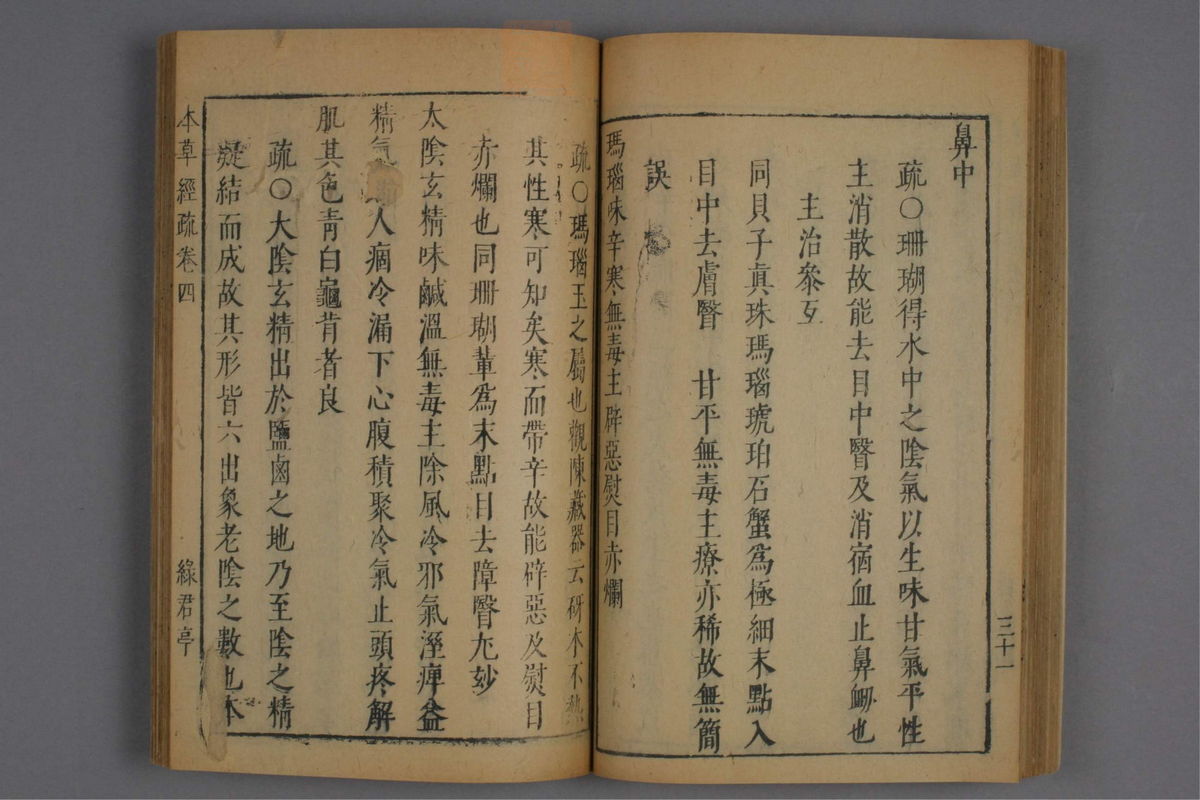 鼻中
疏○珊瑚得水中之陰氣以生味甘氣平性
主消散故能去目中瞖及消宿血止鼻衂也
主治叅互
同貝子真珠瑪瑙琥珀石蟹爲極細末點入
目中去膚瞖 甘平無毒主療亦稀故無簡
誤
瑪瑙味辛寒無毒主辟惡熨目赤爛
三十一
疏○瑪瑙玉之屬也觀陳藏器云砑木不熱
其性寒可知矣寒而帶辛故能辟惡及熨目
赤爛也同珊瑚軰爲末點目去障瞖尤妙
太陰玄精味鹹溫無毒主除風冷邪氣溼痺益
精氣人痼冷漏下心腹積聚冷氣止頭疼解
肌其色靑白龜背者良
疏○大陰玄精出於鹽鹵之地乃至陰之精
凝結而成故其形皆六出象老陰之數也本
本草經疏卷四
綠君亭